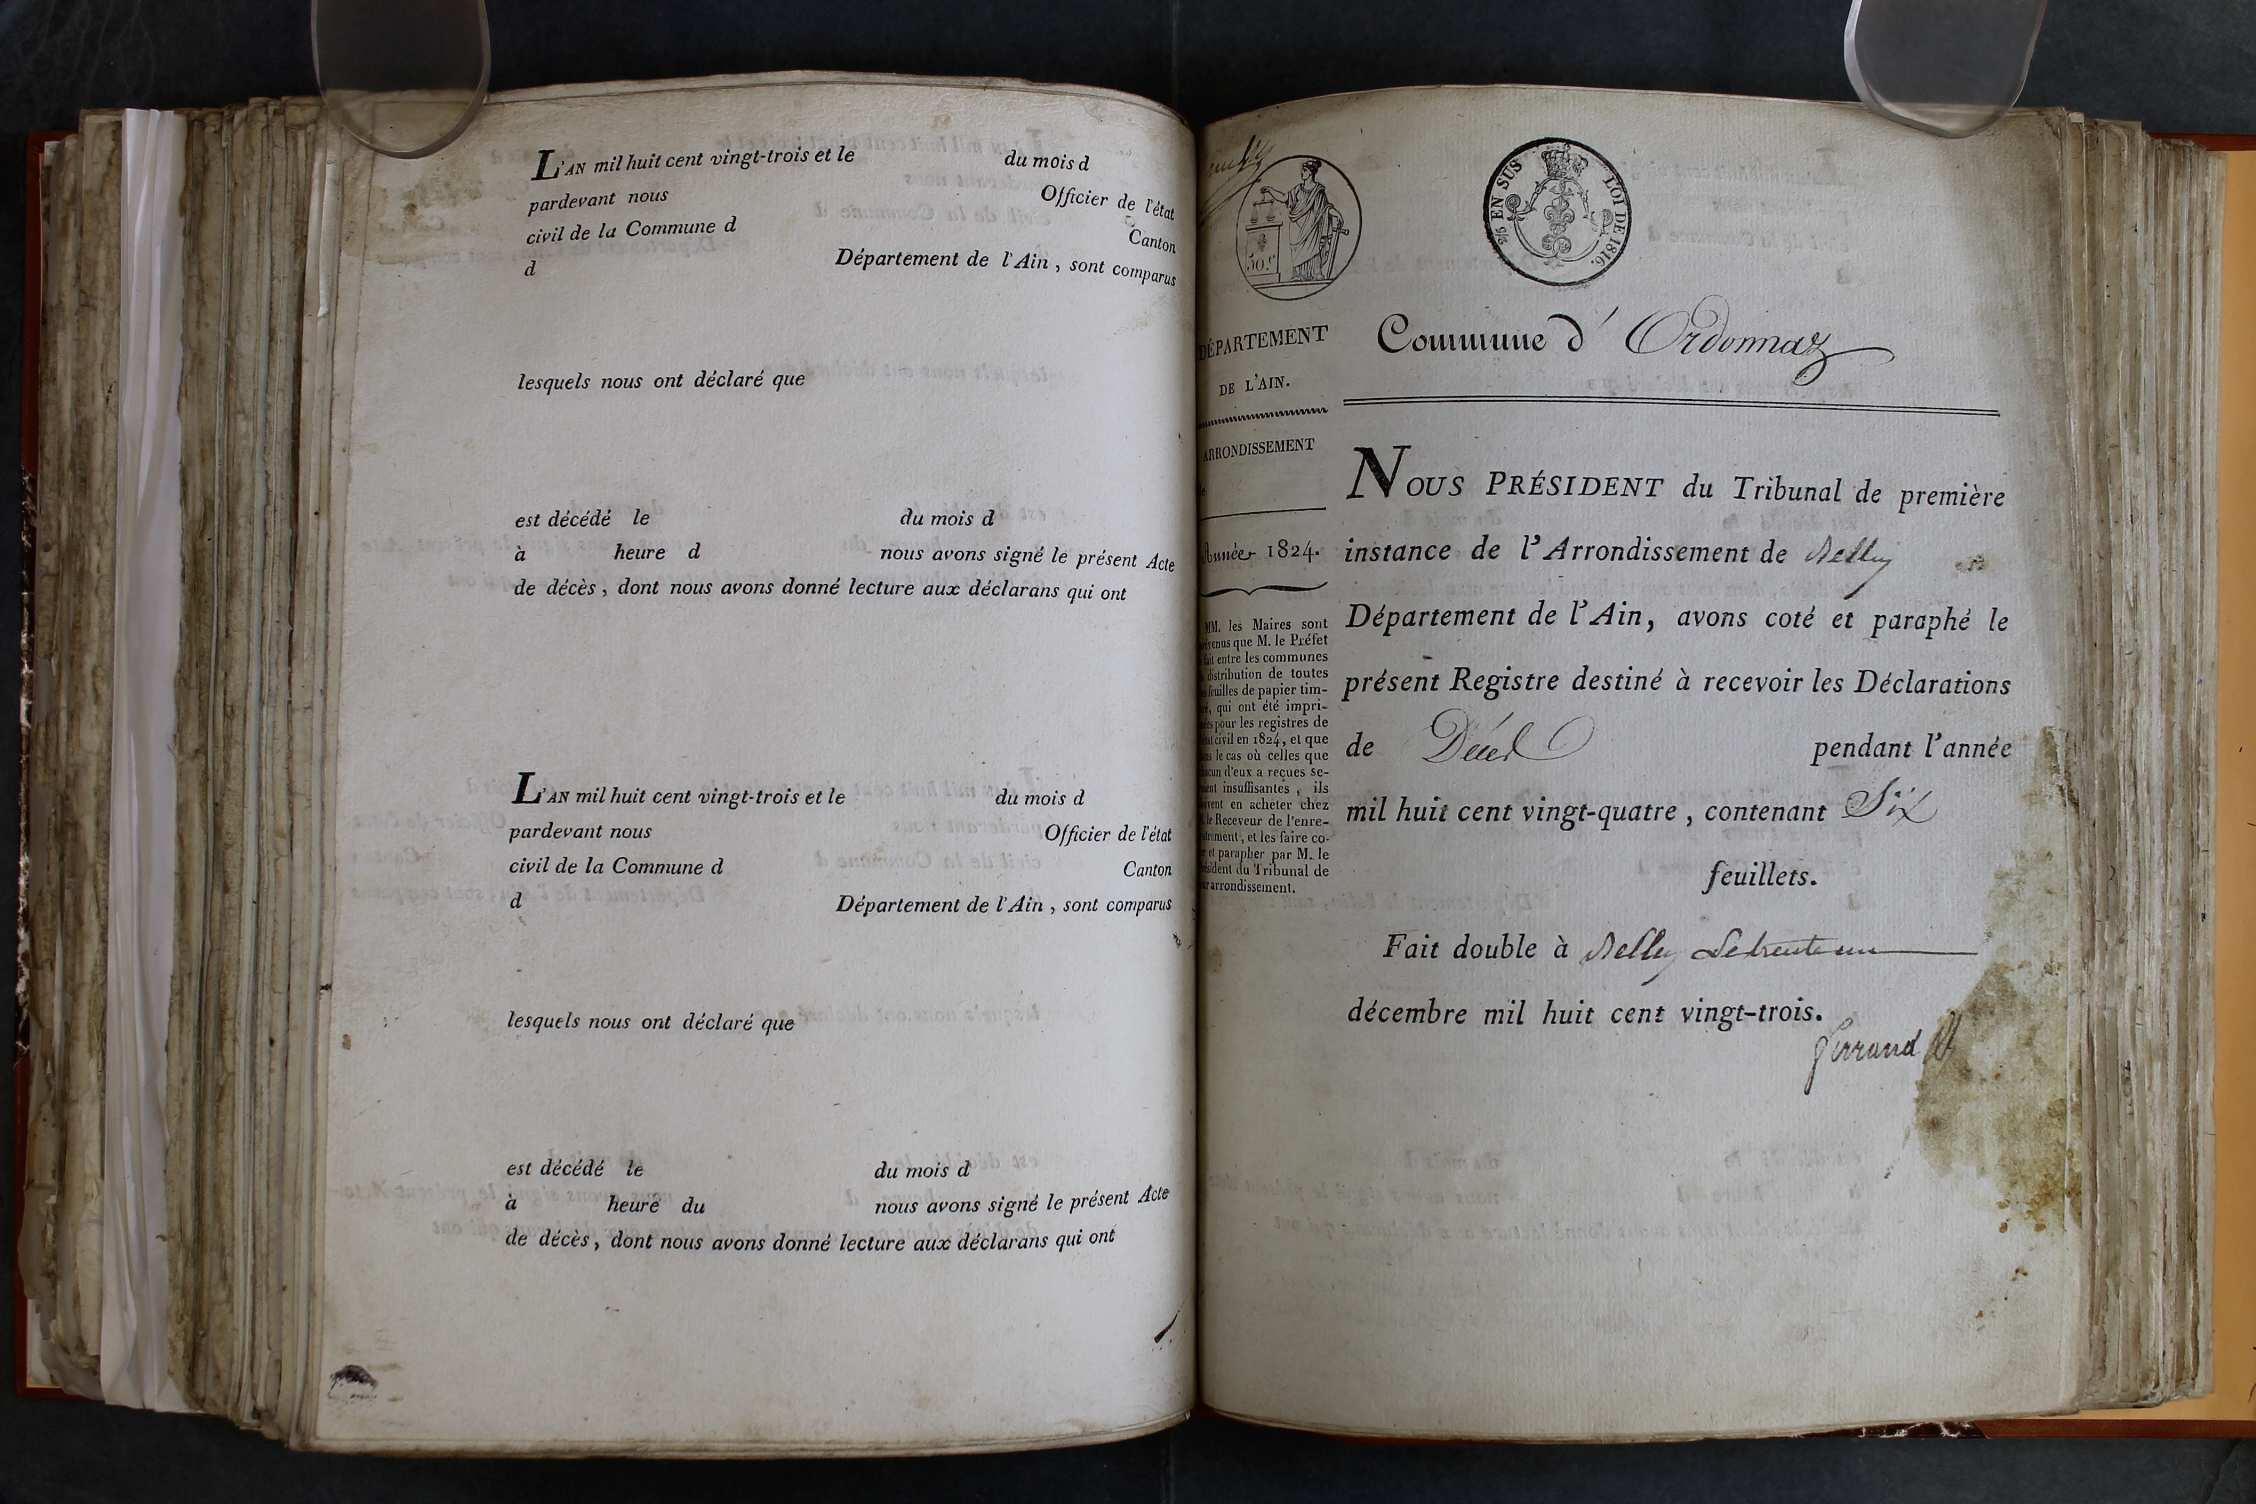 L'AN mil huit cent vingt-trois et le du mois d
pardevant nous Officier de l'état
civil de la Commune d Canton
d Département de l'Ain, sont comparus
lesquels nous ont déclaré que
est décédé le du mois d
à heure d nous avons signé le présent Acte
de décès, dont nous avons donné lecture aux déclarans qui ont
L'AN mil huit cent vingt-trois et le du mois d
pardevant nous Officier de l'état
civil de la Commune d Canton
d Département de l'Ain, sont comparus
lesquels nous ont déclaré que
est décédé le du mois d
à heure du nous avons signé le présent Acte
de décès, dont nous avons donné lecture aux déclarans qui ont
50.c
EN SUS LOI DE 1816.
DÉPARTEMENT
DE L'AIN.
ARRONDISSEMENT
Année 1824.
MM. les Maires sont
que M. le Préfet
fait entre les communes
distribution de toutes
feuilles de papier tim-
qui ont été impri-
pour les registres de
civil en 1824, et que
le cas où celles que
d'eux a reçues se-
insuffisantes, ils
en acheter chez
le Receveur de l'enre-
et les faire co-
et parapher par M. le
du Tribunal de
arrondissement.
Commune d'Ordonnaz
NOUS PRÉSIDENT du Tribunal de première
instance de l'Arrondissement de Belley
Département de l'Ain, avons coté et paraphé le
présent Registre destiné à recevoir les Déclarations
de Décès pendant l'année
mil huit cent vingt-quatre, contenant Six
feuillets.
Fait double à Belley le trente un
décembre mil huit cent vingt-trois.